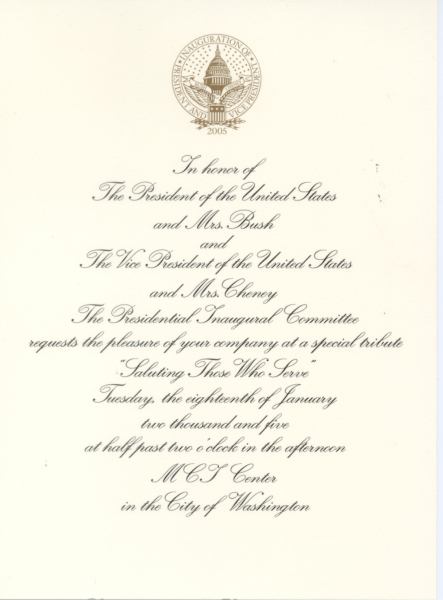 INAUGURATION OF
PRESIDENT AND VICE PRESIDENT
2005
In honor of
The President of the United States
and Mrs. Bush
and
The Vice President of the United States
and Mrs. Cheney
The Presidential Inaugural Committee
requests the pleasure of your company at a special tribute
"Saluting Those Who Serve"
Tuesday, the eighteenth of January
two thousand and five
at half past two o'clock in the afternoon
MCI Center
in the City of Washington